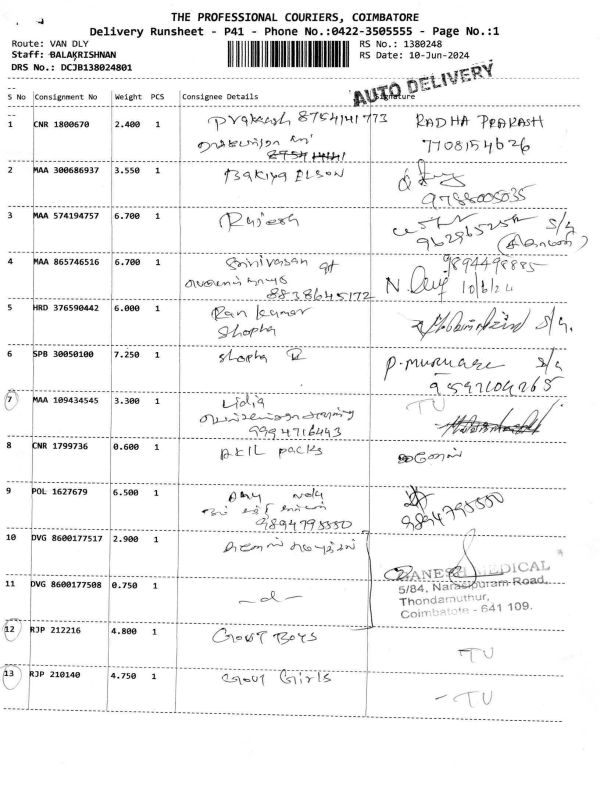 THE PROFESSIONAL COURIERS, COIMBATORE
Delivery Runsheet - P41 - Phone No.:0422-3505555 - Page No.:1
Route: VAN DLY
RS No.: 1380248
Staff: BALAKRISHNAN
RS Date: 10-Jun-2024
DRS No.: DCJB138024801
AUTO DELIVERY
S No Consignment No Weight PCS Consignee Details Signature
1 CNR 1800670 2.400 1 Prakash 8754141773 RADHA PRAKASH
7708154626
2 MAA 300686937 3.550 1 Bakiya ELSON
9788005035
3 MAA 574194757 6.700 1 Rajesh S/G
4 MAA 865746516 6.700 1 Srinivasan 9894498885
8838645172 10/6/24
5 HRD 376590442 6.000 1 Ram kumar S/G.
Shopha
6 SPB 30050100 7.250 1 Shopha R P. MURUGAE S/G
7 MAA 109434545 3.300 1 Lidia TU
9994716493
8 CNR 1799736 0.600 1 AKIL packs
9 POL 1627679 6.500 1
9894795550 9894795550
10 DVG 8600177517 2.900 1
GANESH MEDICAL
5/84, Narasipuram Road,
11 DVG 8600177508 0.750 1 -d-
Thondamuthur,
Coimbatote - 641 109.
12 RJP 212216 4.800 1 Govt Boys TU
13 RJP 210140 4.750 1 Govt Girls - TU